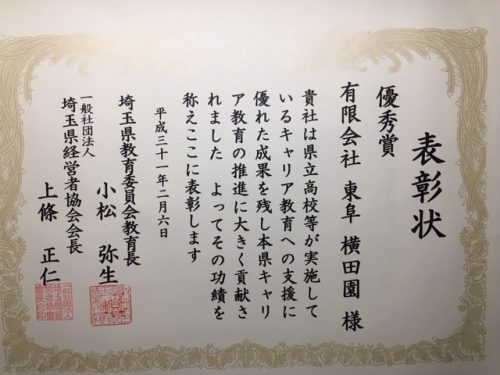 表彰状
優秀賞
有限会社 東阜 横田園 様
貴社は県立高校等が実施して
いるキャリア教育への支援に
優れた成果を残し本県キャリ
ア教育の推進に大きく貢献さ
れました よってその功績を
称えここに表彰します
平成三十一年二月六日
埼玉県教育委員会教育長
小松 弥生
一般社団法人
埼玉県経営者協会会長
上條 正仁